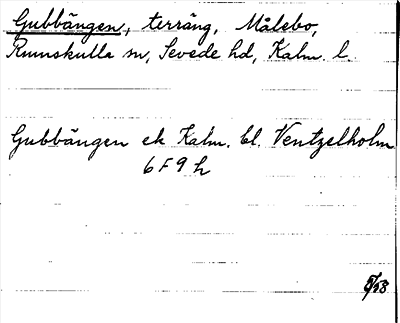 Gubbängen, terräng, Målebo,
Rumskulla sn, Sevede hd, Kalm. l.
Gubbängen ek Kalm. bl. Ventzelholm
6 F 9 h